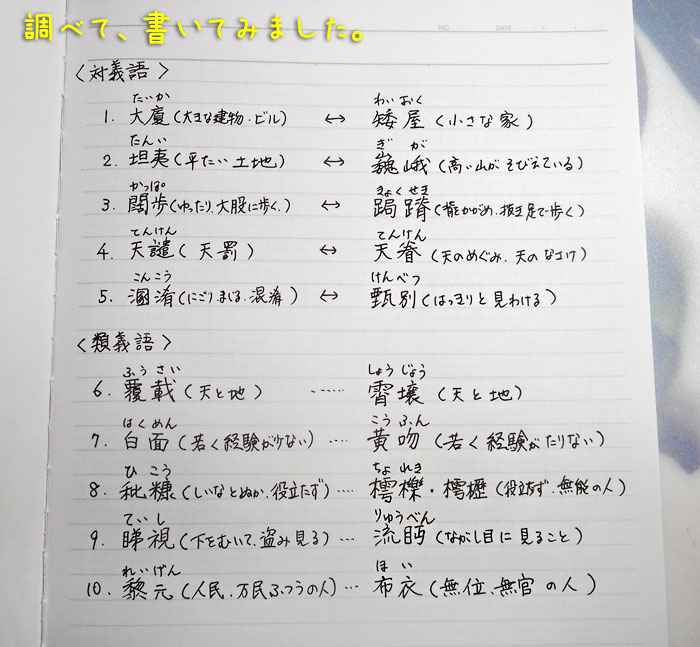 調べて、書いてみました。
〈対義語〉
たいか わいおく
1. 大廈(大きな建物・ビル) ↔ 矮屋(小さな家)
たんい ぎが
2. 坦夷(平たい土地) ↔ 巍峨(高い山がそびえている)
かっぽ きょくせき
3. 闊歩(ゆったり、大股に歩く。) ↔ 跼蹐(背をかがめ、抜き足で歩く)
てんけん てんけん
4. 天譴(天罰) ↔ 天眷(天のめぐみ、天のなさけ)
こんこう けんべつ
5. 溷淆(にごり、まじる、混淆) ↔ 甄別(はっきりと見わける)
〈類義語〉
ふうさい しょうじょう
6. 覆載(天と地) ‥‥‥ 霄壌(天と地)
はくめん こうふん
7. 白面(若く経験が少ない) ‥‥ 黄吻(若く経験がたりない)
ひこう ちょれき
8. 秕糠(しいなとぬか、役立たず) ‥‥ 樗櫟・樗櫪(役立たず、無能の人)
ていし りゅうべん
9. 睇視(下をむいて、盗み見る) ‥‥ 流眄(ながし目に見ること)
れいげん ほい
10. 黎元(人民、万民ふつうの人) ‥‥ 布衣(無位、無官の人)